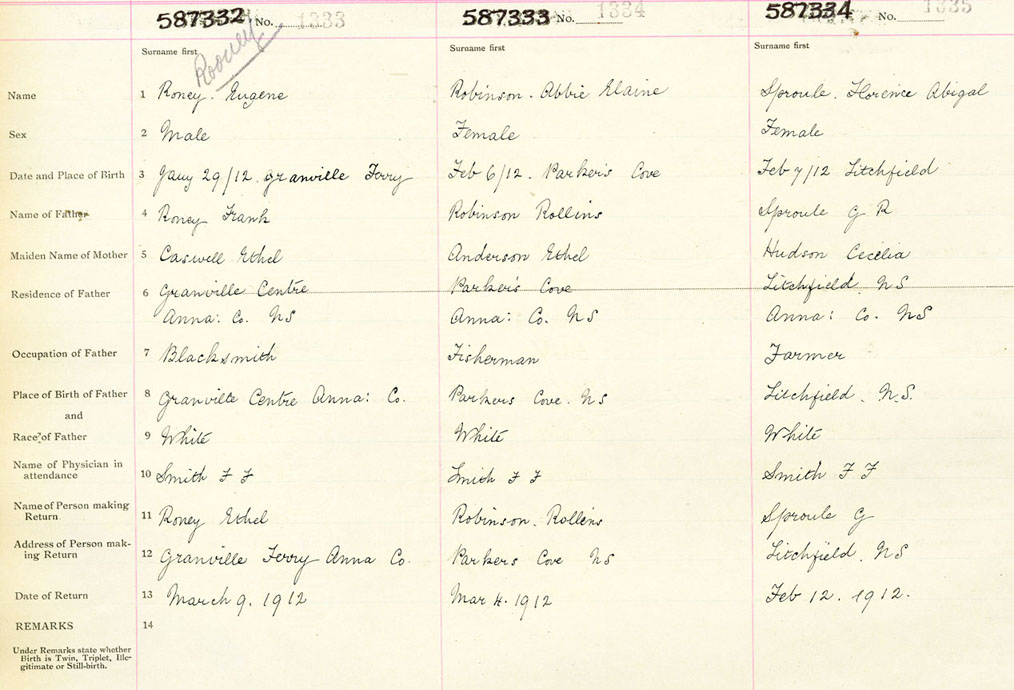 587332 No. 1333 587333 No. 1334 587334 No. 1335
Surname first Surname first Surname first
Rooney
Name 1 Roney. Eugene Robinson. Abbie Elaine Sproule. Florence Abigal
Sex 2 Male Female Female
Date and Place of Birth 3 Jany 29/12. Granville Ferry Feb 6/12. Parker's Cove Feb 7/12 Litchfield
Name of Father 4 Roney Frank Robinson Rollins Sproule G R
Maiden Name of Mother 5 Caswell Ethel Anderson Ethel Hudson Cecelia
Residence of Father 6 Granville Centre Parker's Cove Litchfield. NS
Anna: Co. NS Anna: Co. NS Anna: Co. NS
Occupation of Father 7 Blacksmith Fisherman Farmer
Place of Birth of Father 8 Granville Centre Anna: Co. Parkers Cove. NS Litchfield. N.S.
and
Race of Father 9 White White White
Name of Physician in
attendance 10 Smith F F Smith F F Smith F F
Name of Person making
Return 11 Roney Ethel Robinson. Rollins Sproule G
Address of Person mak-
ing Return 12 Granville Ferry Anna Co. Parkers Cove NS Litchfield. NS
Date of Return 13 March 9. 1912 Mar 4. 1912 Feb 12. 1912.
REMARKS 14
Under Remarks state whether
Birth is Twin, Triplet, Ille-
gitimate or Still-birth.